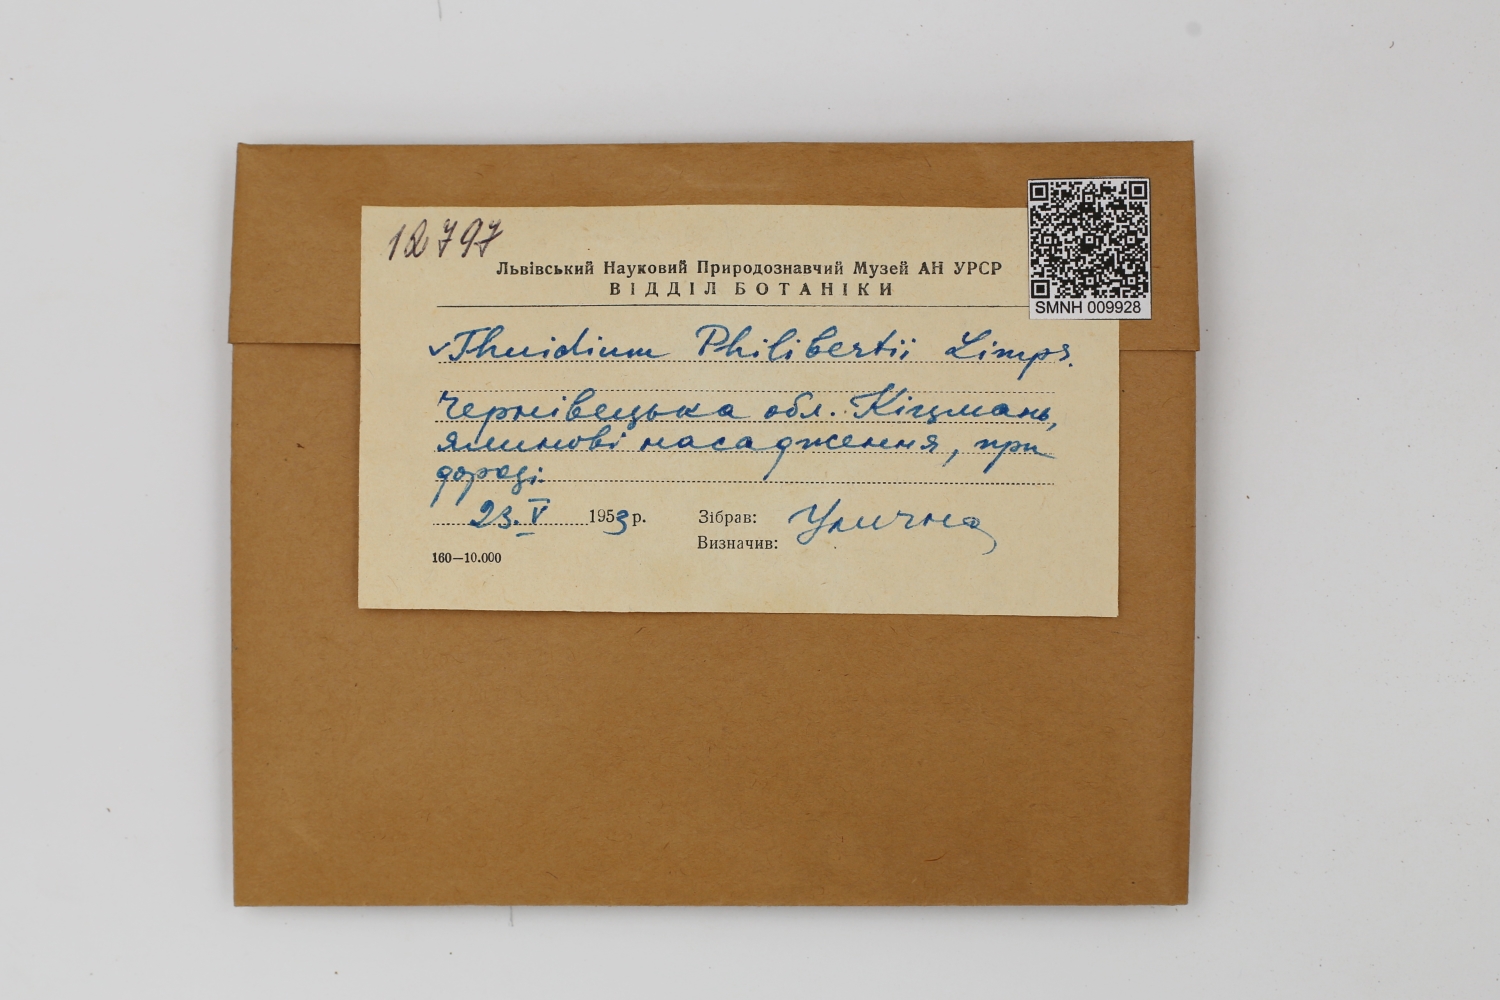 12797
Львівський Науковий Природознавчий Музей АН УРСР
ВІДДІЛ БОТАНІКИ
SMNH 009928
✓Thuidium Philibertii Limpr.
Чернівецька обл. Кіцмань,
ялинові насадження, при
дорозі.
23.V 1953 р. Зібрав: Улична
Визначив:
160—10.000